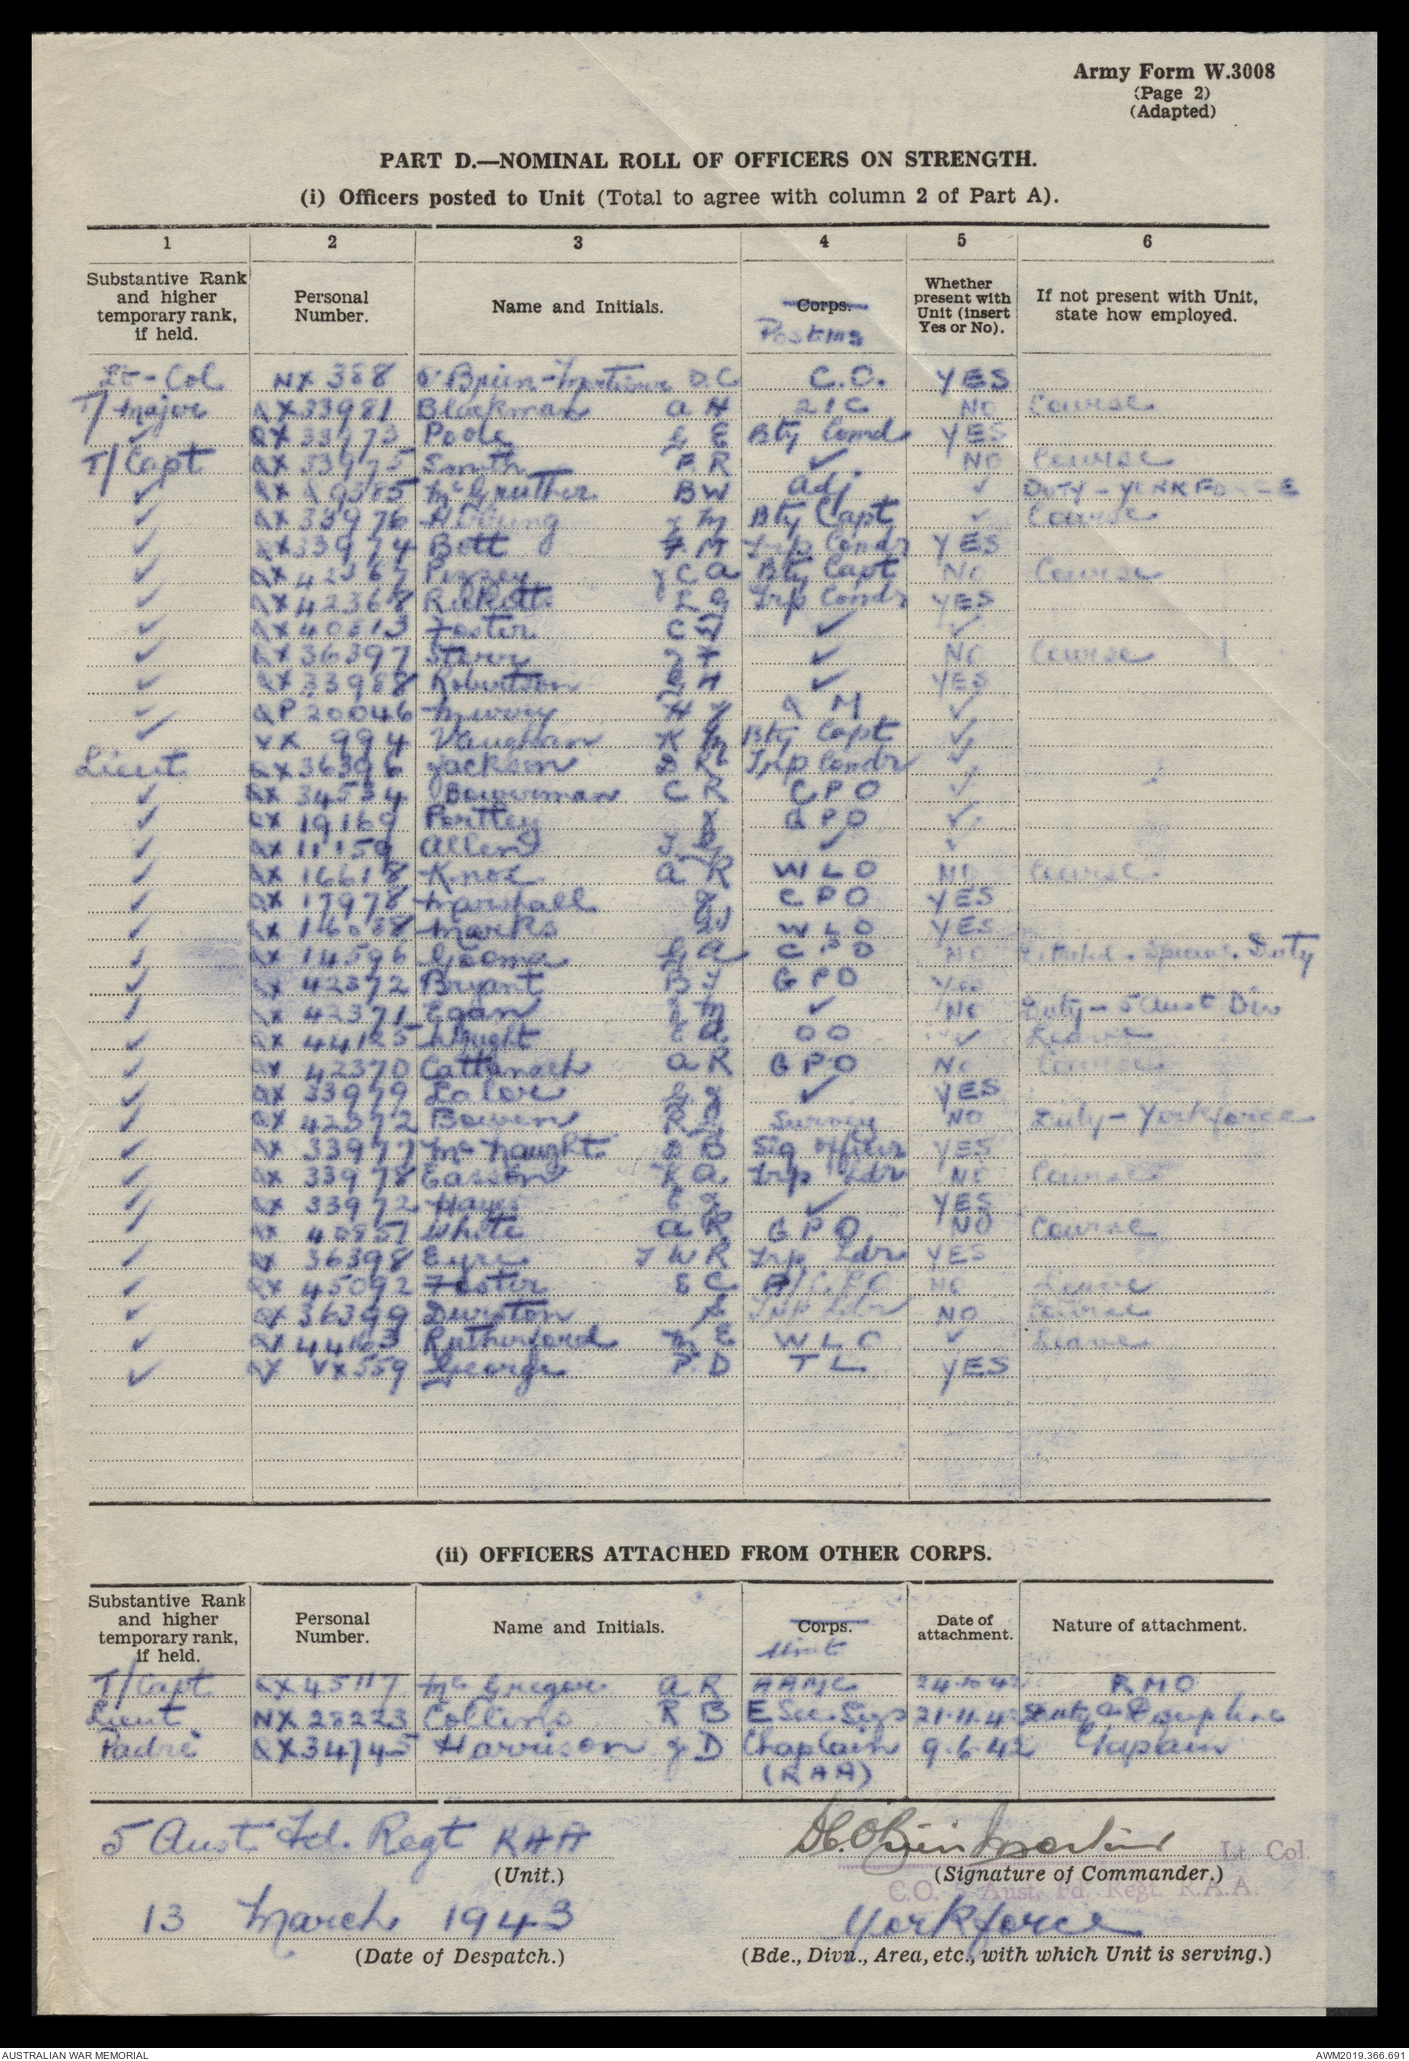 Army Form W.3008
(Page 2)
(Adapted)
PART D.—NOMINAL ROLL OF OFFICERS ON STRENGTH.
(i) Officers posted to Unit (Total to agree with column 2 of Part A).
1 2 3 4 5 6
Substantive Rank and higher temporary rank, if held. Personal Number. Name and Initials. Corps. Posting Whether present with Unit (insert Yes or No). If not present with Unit, state how employed.
Lt-Col NX 388 O'Brien-Mortimer D.C C.O. YES
T/Major QX 33981 Blackman A H 2 I C NO Course
✓ QX 33973 Poole G E Bty Comd YES
T/Capt QX 33975 Smith F R ✓ NO Course
✓ McGruther B W Adj ✓ DUTY - YORKFORCE
✓ QX 33976 J M Bty Capt ✓ Course
✓ QX 33974 Bott F. M Trp Comdr YES
✓ Pizzey J C A Bty Capt NO Course
✓ QX 42368 Ricketts L G Trp Comdr YES
✓ QX 40813 Foster C W ✓ ✓
✓ QX 36397 Starr J F ✓ NO Course
✓ QX 33988 Robertson E H ✓ YES
✓ QP 20046 H J Q M ✓
✓ VX 994 Vaughan K M Bty Capt ✓
Lieut QX 36396 Jackson D R Trp Comdr ✓
✓ QX 34534 Bowerman C R C P O ✓
✓ QX 19169 Portley J G P O ✓
✓ QX 11159 Allen ✓ ✓
✓ QX 16618 Knox A R W L O NO Course
✓ QX 17978 Marshall J C P O YES
✓ QX 16088 Marks W W L O YES
✓ QX 14596 G A C P O NO Special Duty
✓ Bryant B J G P O Yes
✓ QX 42371 Egan J M ✓ NO Duty - 5 Aust Div
✓ QX 44125 Wright E A O O ✓ Leave
✓ QX 42370 Cattanach A R G P O No Course
✓ QX 33979 Lalor G J ✓ YES
✓ Bowen Survey NO Duty - Yorkforce
✓ QX 33977 McNaught D B Sig Officer YES
✓ QX 33978 Easson K A Trp Ldr NO Course
✓ QX 33972 Hayes E J ✓ YES
✓ QX 40851 White A R G P O NO Course
✓ QX 36398 Eyre T W R Trp Ldr YES
✓ QX 45092 Foster E C A/C.P.O NO Leave
✓ QX 36399 Durston Trp Ldr NO Course
✓ Rutherford M E W L O ✓ Leave
✓ VX 559 George P. D T L. YES
(ii) OFFICERS ATTACHED FROM OTHER CORPS.
Substantive Rank and higher temporary rank, if held. Personal Number. Name and Initials. Corps. Unit Date of attachment. Nature of attachment.
T/Capt QX 45117 McGregor A R AAMC 24.10.42 R M O
Lieut NX 28223 Collins R B E Sec. Sigs 21.11.42
Padre QX 34745 Harrison J D Chaplain 9.6.42 Chaplain
(RAA)
5 Aust. Fd. Regt RAA
(Unit.)
D.C. O'Brien Mortimer Lt Col.
(Signature of Commander.)
C.O. 5 Aust. Fd. Regt. R.A.A.
13 March 1943
(Date of Despatch.)
Yorkforce
(Bde., Divn., Area, etc., with which Unit is serving.)
AUSTRALIAN WAR MEMORIAL
AWM2019.366.691